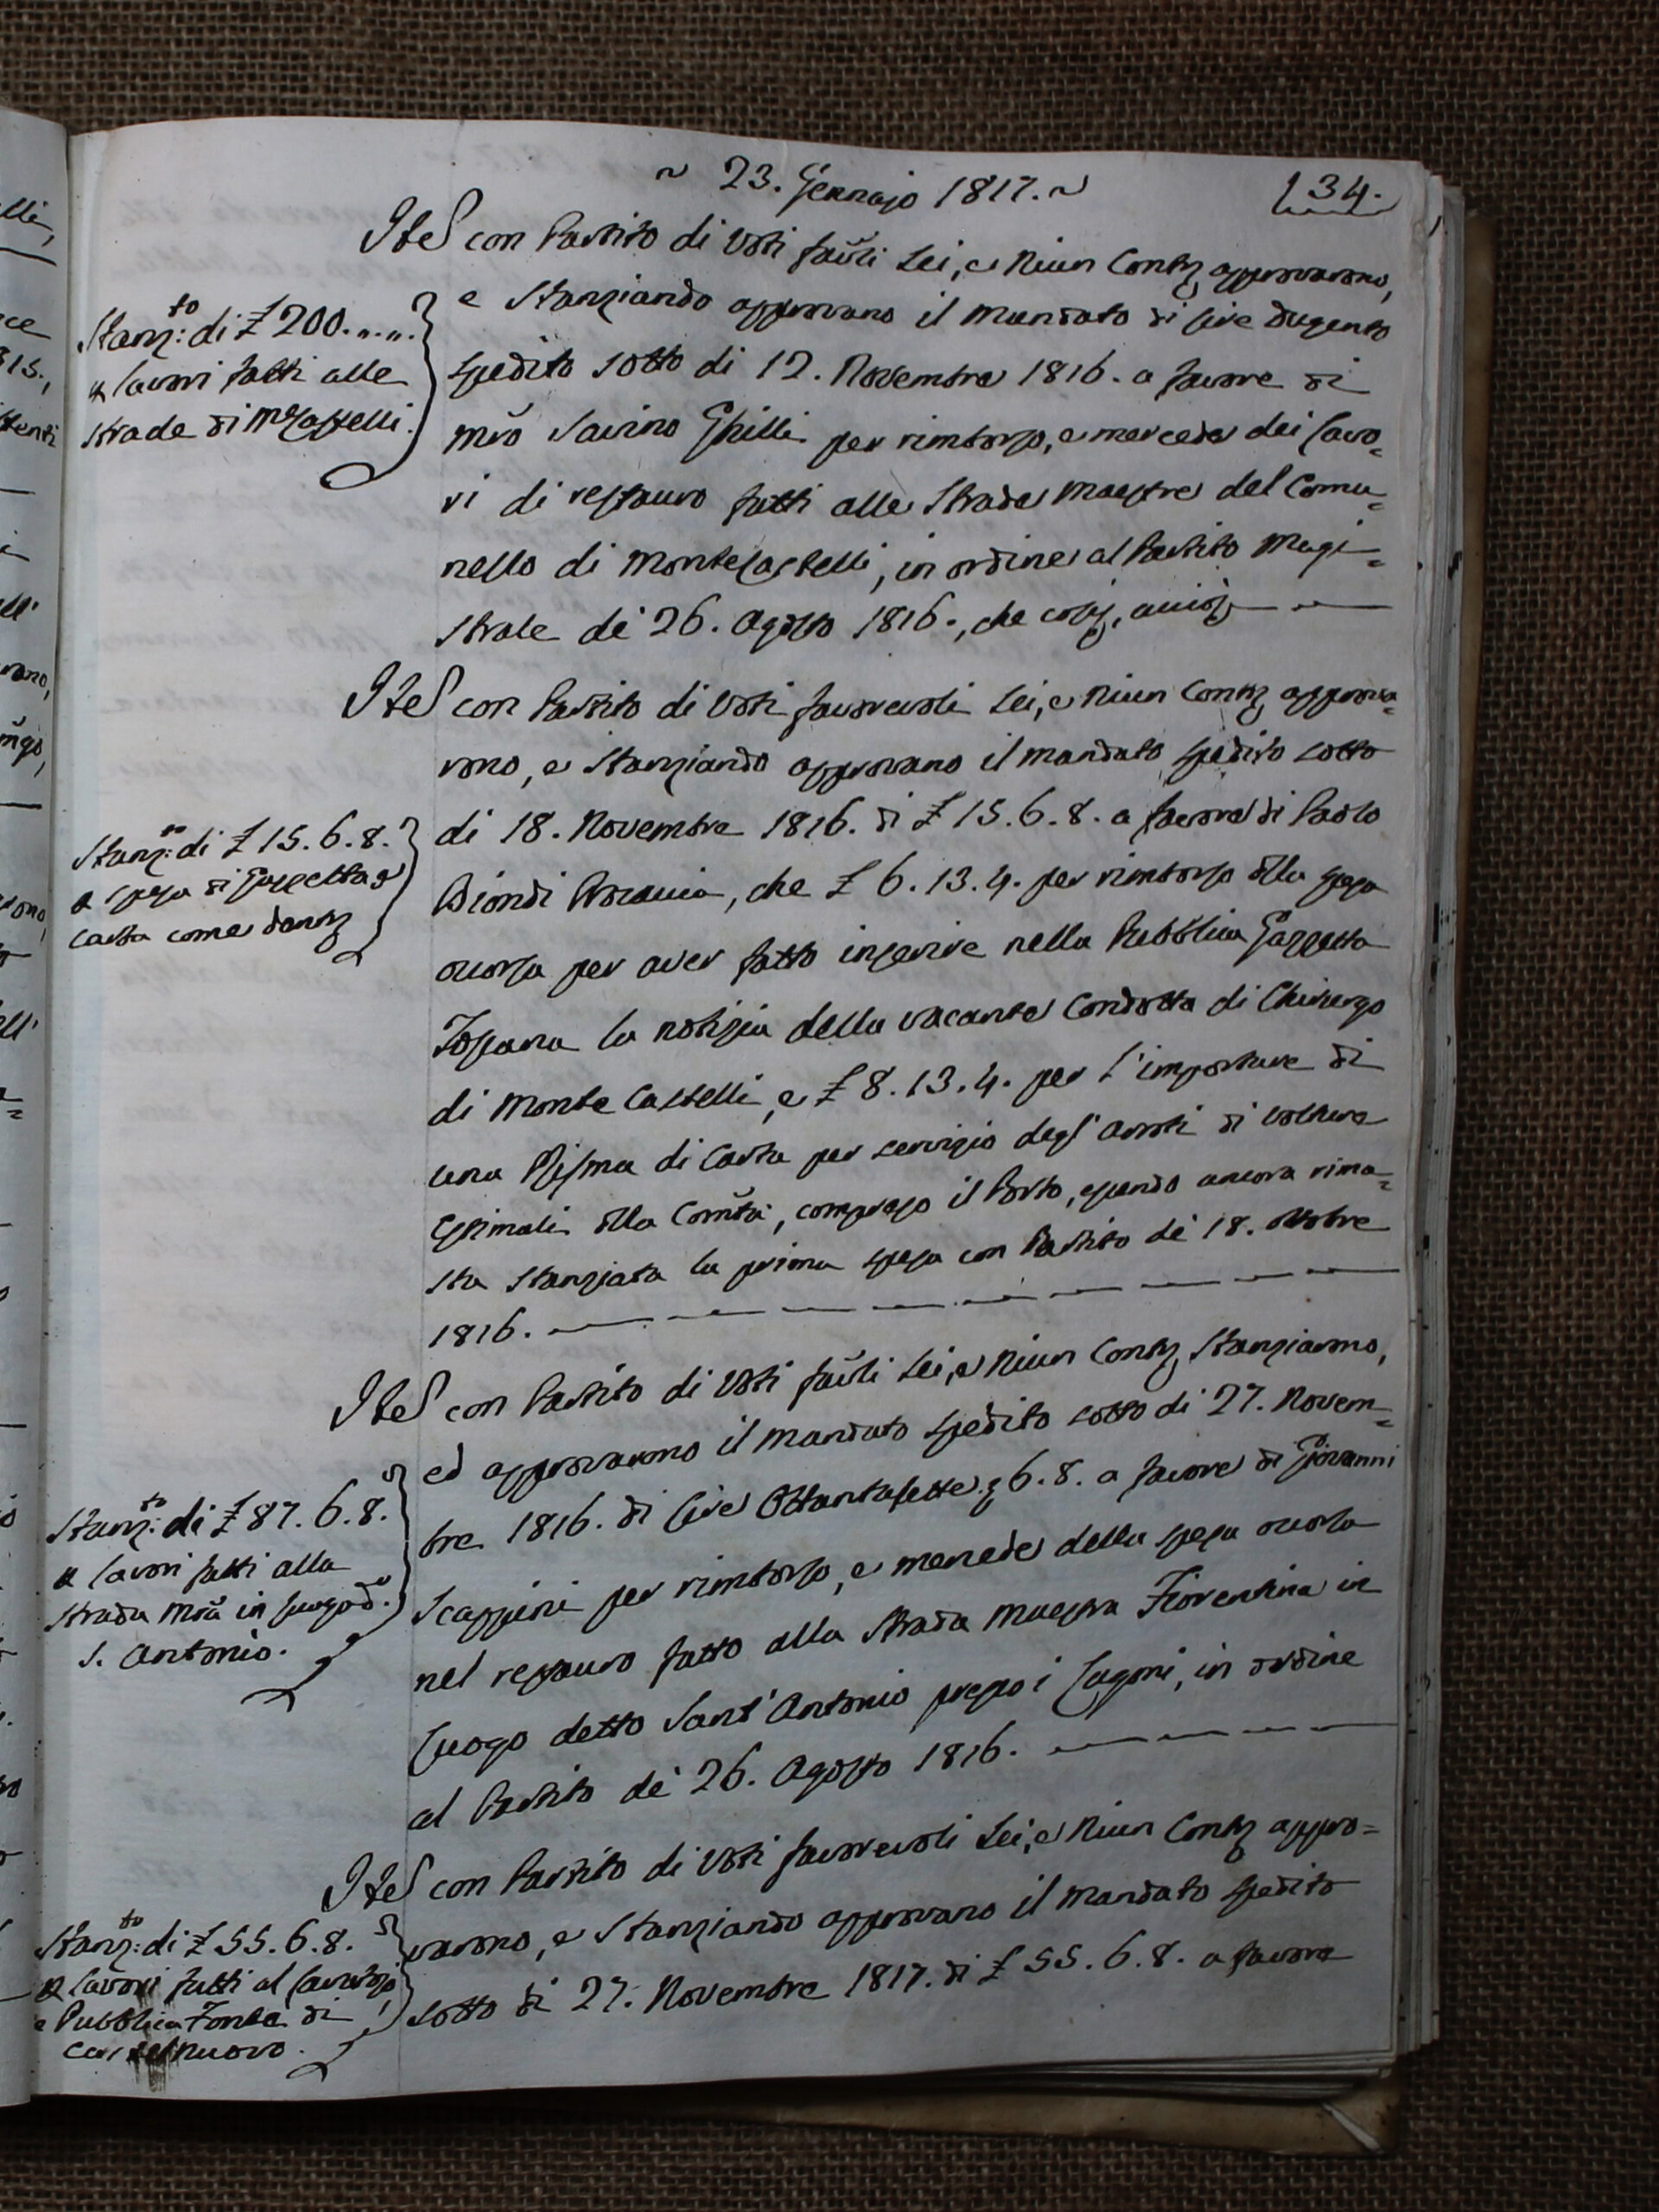 ~ 23. Gennajo 1817. ~
134.
Ite[m] con Partito di Voti fav̄li Sei, e Niun Contr. approvarono,
e Stanziando approvano il mandato di Lire dugento
Spedito sotto di 12. Novembre 1816. a favore di
mr̄o Savino Ghilli per rimborso, e mercede dei Lavo=
ri di restauro fatti alle Strade Maestre del Comu=
nello di MonteCastelli, in ordine al Partito Magi=
strale de 26. Agosto 1816., che così,
Stanz:to di £ 200. „ . „ .
p Lavori fatti alle
Strade di MCastelli.
Ite[m] con Partito di Voti favorevoli Sei, e Niun Contr. approva=
rono, e Stanziando approvano il mandato spedito sotto
di 18. Novembre 1816. di £ 15. 6. 8. a favore di Paolo
Biondi Procaccia, che £ 6. 13. 4. per rimborso della spesa
occorsa per aver fatto inserire nella Pubblica Gazzetta
Toscana la notizia della vacante Condotta di Chirurgo
di Monte Castelli, e £ 8. 13. 4. per l'importare di
una Risma di Carta per servizio degl' Arroti di Volture
Estimali della Com̄tà, compreso il Porto, essendo ancora rima=
sta Stanziata la prima spesa con Partito de 18. Ottobre
1816.
Stanz:to di £ 15. 6. 8.
p spesa di Gazzetta, e
Carta come dentr.
Ite[m] con Partito di Voti fav̄li Sei, e Niun Contr. Stanziarono,
ed approvarono il mandato spedito sotto di 27. Novem=
bre 1816. di Lire Ottantasette, 6. 8. a favore di Giovanni
Scappini per rimborso, e mercede della spesa occorsa
nel restauro fatto alla Strada Maestra Fiorentina in
Luogo detto Sant' Antonio presso i Lagoni, in ordine
al Partito de 26. Agosto 1816.
Stanz:to di £ 87. 6. 8.
p Lavori fatti alla
Strada Mrā in Luogo d.o
S. Antonio.
Ite[m] con Partito di Voti favorevoli Sei, e Niun Contr. appro=
varono, e Stanziando approvano il mandato spedito
sotto di 27. Novembre 1817. di £ 55. 6. 8. a favore
Stanz:to di £ 55. 6. 8.
p Lavori fatti al Lavatojo,
e Pubblica Fonte di
Castelnuovo.